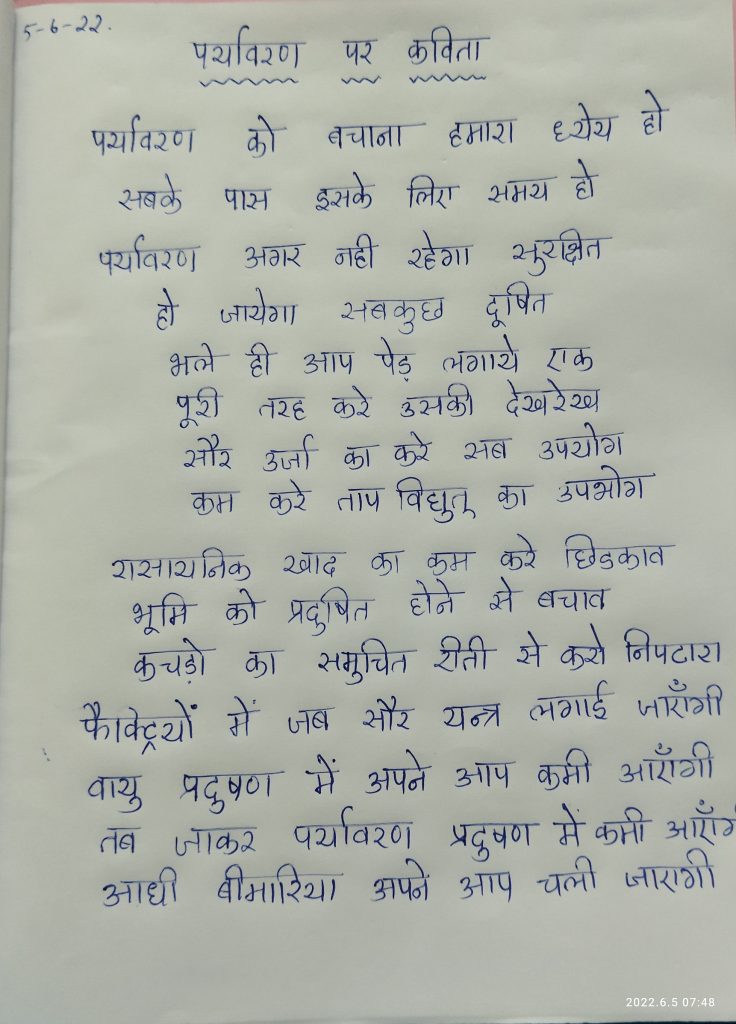 5-6-22.
पर्यावरण पर कविता
पर्यावरण को बचाना हमारा ध्येय हो
सबके पास इसके लिए समय हो
पर्यावरण अगर नही रहेगा सुरक्षित
हो जायेगा सबकुछ दूषित
भले ही आप पेड़ लगाये एक
पूरी तरह करे उसकी देखरेख
सौर उर्जा का करे सब उपयोग
कम करे ताप विद्युत् का उपभोग
रासायनिक खाद का कम करे छिडकाव
भूमि को प्रदुषित होने से बचाव
कचड़ो का समुचित रीती से करो निपटारा
फैक्ट्रियों में जब सौर यन्त्र लगाई जाएँगी
वायु प्रदुषण में अपने आप कमी आएँगी
तब जाकर पर्यावरण प्रदुषण में कमी आएँग
आधी बीमारिया अपने आप चली जाएगी
2022.6.5 07:48